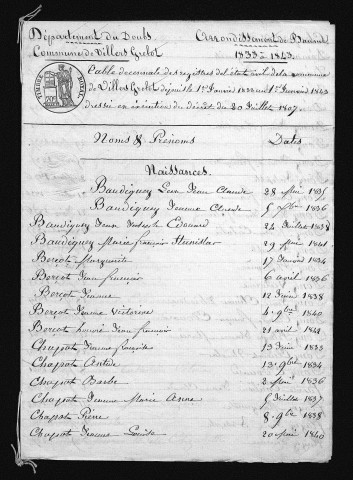 Département du Doubs Arrondissement de Baume
Commune de Villers Grelot 1833 à 1843.
TIMBRE ROYAL
Table décennale des registres de l'état civil de la commune
de Villers Grelot depuis le 1er Janvier 1833 au 1er Janvier 1843
dressée en exécution du décret du 20 Juillet 1807.
Noms & Prénoms Dates
Naissances.
Baudiquey Jean Claude 28 Mai 1835
Baudiquey Jeanne Claude 5 1836
Baudiquey Jean Edouard 24 Juillet 1838
Baudiquey Marie françois Stanislas 29 Mai 1841
Bercot Marguerite 17 Janvier 1834
Bercot Jean françois 6 avril 1836
Bercot Jeanne 12 février 1838
Bercot Jeanne Victorine 4 9bre 1840
Bercot Jean françois 21 avril 1842
Chapotte Jeanne 13 Juin 1833
Chapotte Antide 13 9bre 1834
Chapotte Barbe 2 Mai 1836
Chapotte Jeanne Marie Anne 5 Juillet 1837
Chapotte Pierre 8 9bre 1838
Chapotte Jeanne Louise 20 Mai 1840